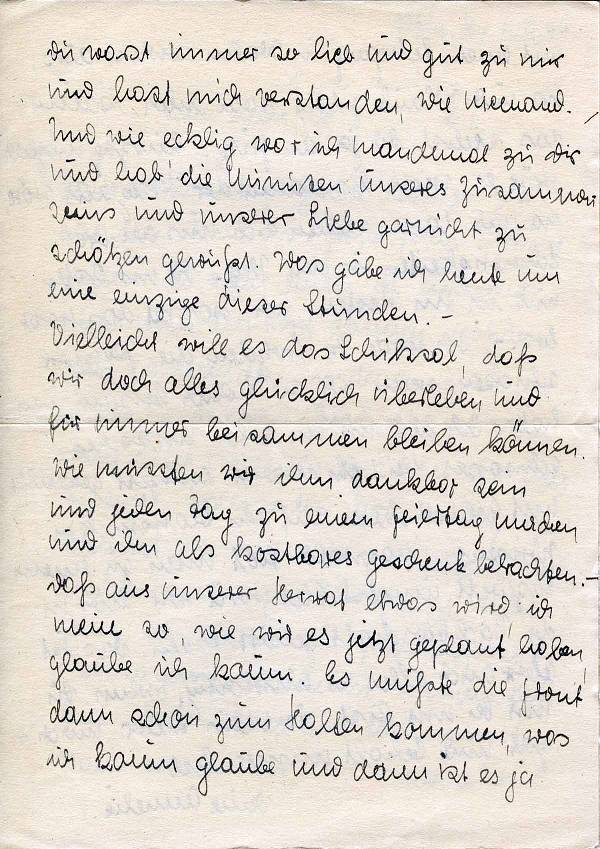 du warst immer so lieb und gut zu mir
und hast mich verstanden, wie niemand.
Und wie ecklig war ich manchmal zu dir
und hab' die Minuten unseres Zusammen
seins und unserer Liebe garnicht zu
schätzen gewußt. Was gäbe ich heute um
eine einzige dieser Stunden. –
Vielleicht will es das Schiksal, daß
wir doch alles glücklich überleben und
für immer beisammen bleiben können.
Wie müssten wir ihm dankbar sein
und jeden Tag zu einem Feiertag machen
und ihn als kostbares Geschenk betrachten. –
Daß aus unserer Heirat etwas wird, ich
mein so, wie wir es jetzt geplant haben,
glaube ich kaum. Es müßte die Front
dann schon zum Halten kommen, was
ich kaum glaube und dann ist es ja